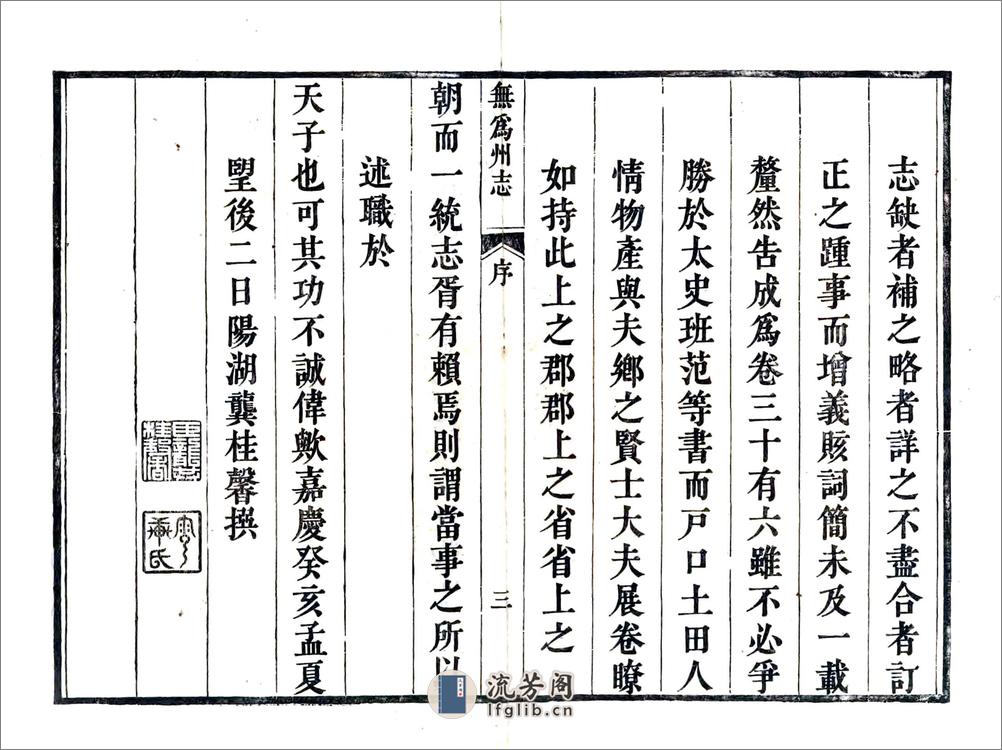 志缺者補之略者詳之不盡合者訂
正之踵事而增義賅詞簡未及一載
釐然吿成爲卷三十有六雖不必爭
勝於太史班范等書而戸口土田人
情物產與夫鄉之賢士大夫展卷瞭
如持此上之郡郡上之省省上之
無爲州志
序
三
朝而一統志胥有賴焉則謂當事之所以
述職於
天子也可其功不誠偉歟嘉慶癸亥孟夏
朢後二日陽湖龔桂馨撰
流芳阁
lfglib.cn